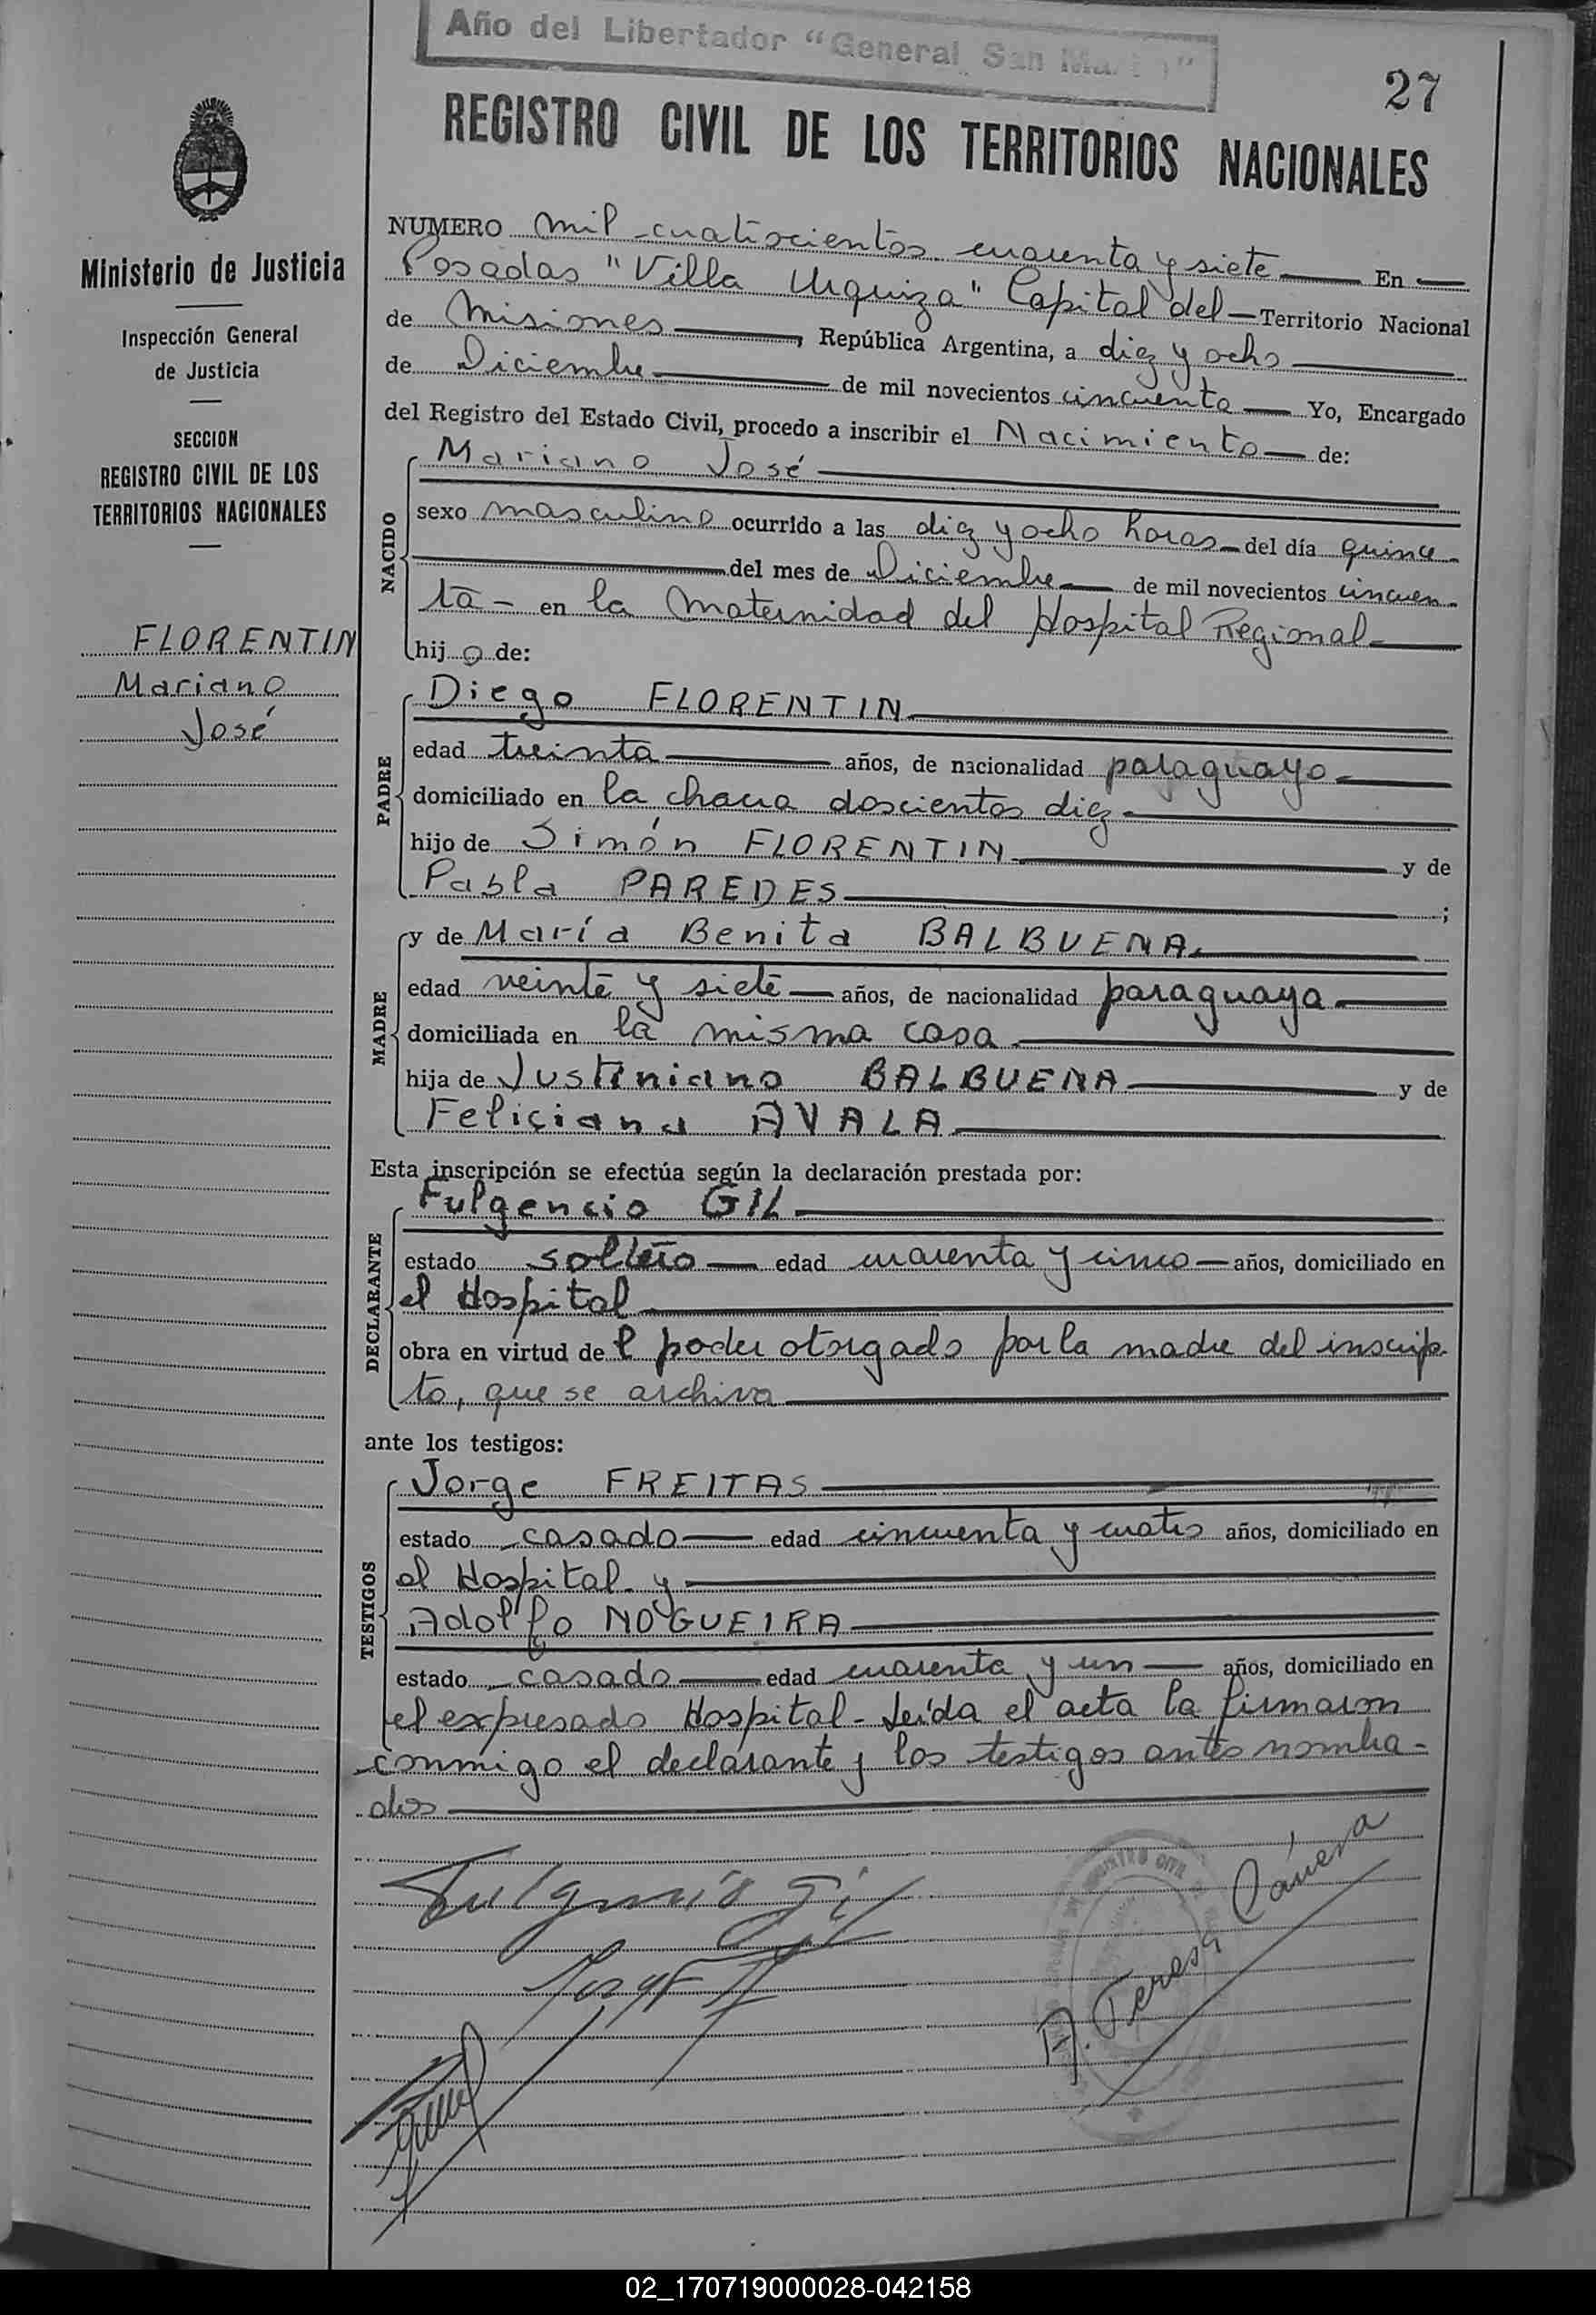 Año del Libertador "General San Martín"
27
REGISTRO CIVIL DE LOS TERRITORIOS NACIONALES
Ministerio de Justicia
Inspección General
de Justicia
SECCION
REGISTRO CIVIL DE LOS
TERRITORIOS NACIONALES
FLORENTIN
Mariano
José
NUMERO mil cuatrocientos cuarenta y siete En
Posadas "Villa Urquiza" Capital del Territorio Nacional
de Misiones, República Argentina, a diez y ocho
de Diciembre de mil novecientos cincuenta Yo, Encargado
del Registro del Estado Civil, procedo a inscribir el Nacimiento de:
NACIDO
Mariano José
sexo masculino ocurrido a las diez y ocho horas del día quince
del mes de Diciembre de mil novecientos cincuen-
ta- en la Maternidad del Hospital Regional
hijo de:
PADRE
Diego FLORENTIN
edad treinta años, de nacionalidad paraguayo
domiciliado en la chacra doscientos diez
hijo de Simón FLORENTIN y de
Pabla PAREDES;
MADRE
y de María Benita BALBUENA
edad veinte y siete años, de nacionalidad paraguaya
domiciliada en la misma casa
hija de Justiniano BALBUENA y de
Feliciana AVALA
Esta inscripción se efectúa según la declaración prestada por:
DECLARANTE
Fulgencio GIL
estado soltero edad cuarenta y cinco años, domiciliado en
el Hospital
obra en virtud del poder otorgado por la madre del inscrip-
to, que se archiva
ante los testigos:
TESTIGOS
Jorge FREITAS
estado casado edad cincuenta y cuatro años, domiciliado en
el Hospital y
Adolfo NOGUEIRA
estado casado edad cuarenta y un años, domiciliado en
el expresado Hospital - Leída el acta la firmaron
conmigo el declarante y los testigos antes nombra-
dos
Fulgencio Gil
A. Teresa Cánera
02_170719000028-042158